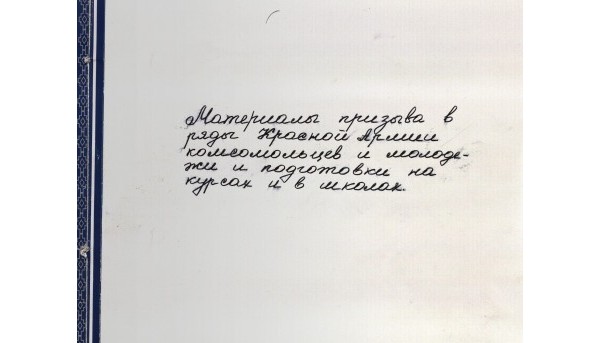 Материалы призыва в
ряды Красной Армии
комсомольцев и молоде-
жи и подготовки на
курсах и в школах.